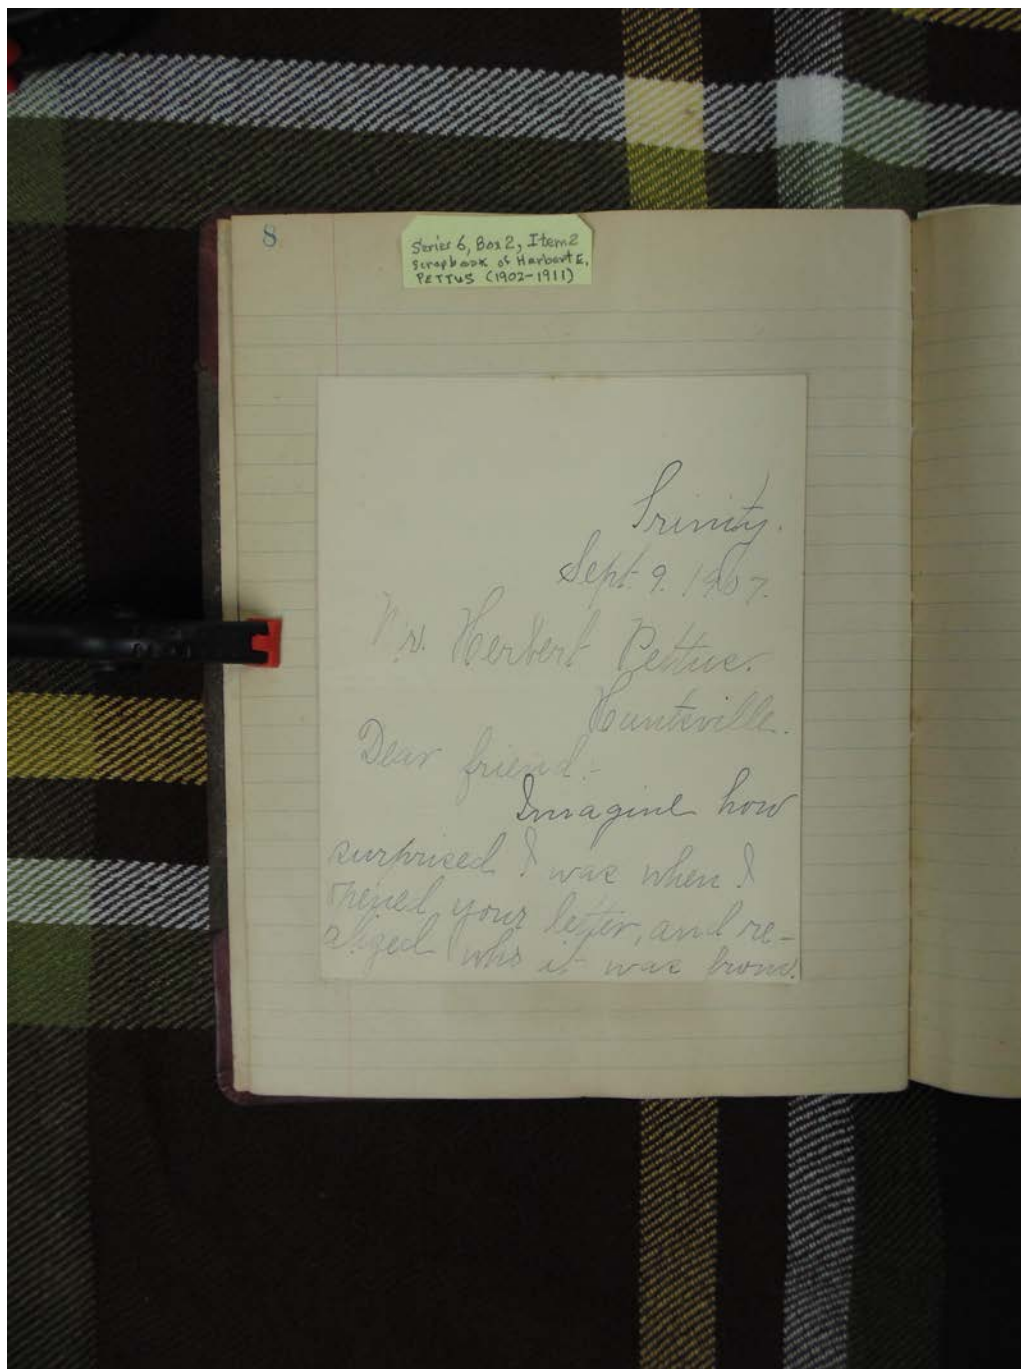 8
Series 6, Box 2, Item 2
Scrapbook of Harbert E.
PETTUS (1902-1911)
Trinity.
Sept. 9. 1907.
Mr. Herbert Pettus.
Huntsville.
Dear friend:-
Imagine how
surprised I was when I
opened your letter, and re-
alized who it was from.